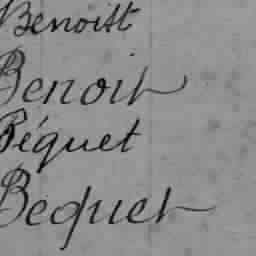 Benoitt
Benoit
Béguet
Bequet